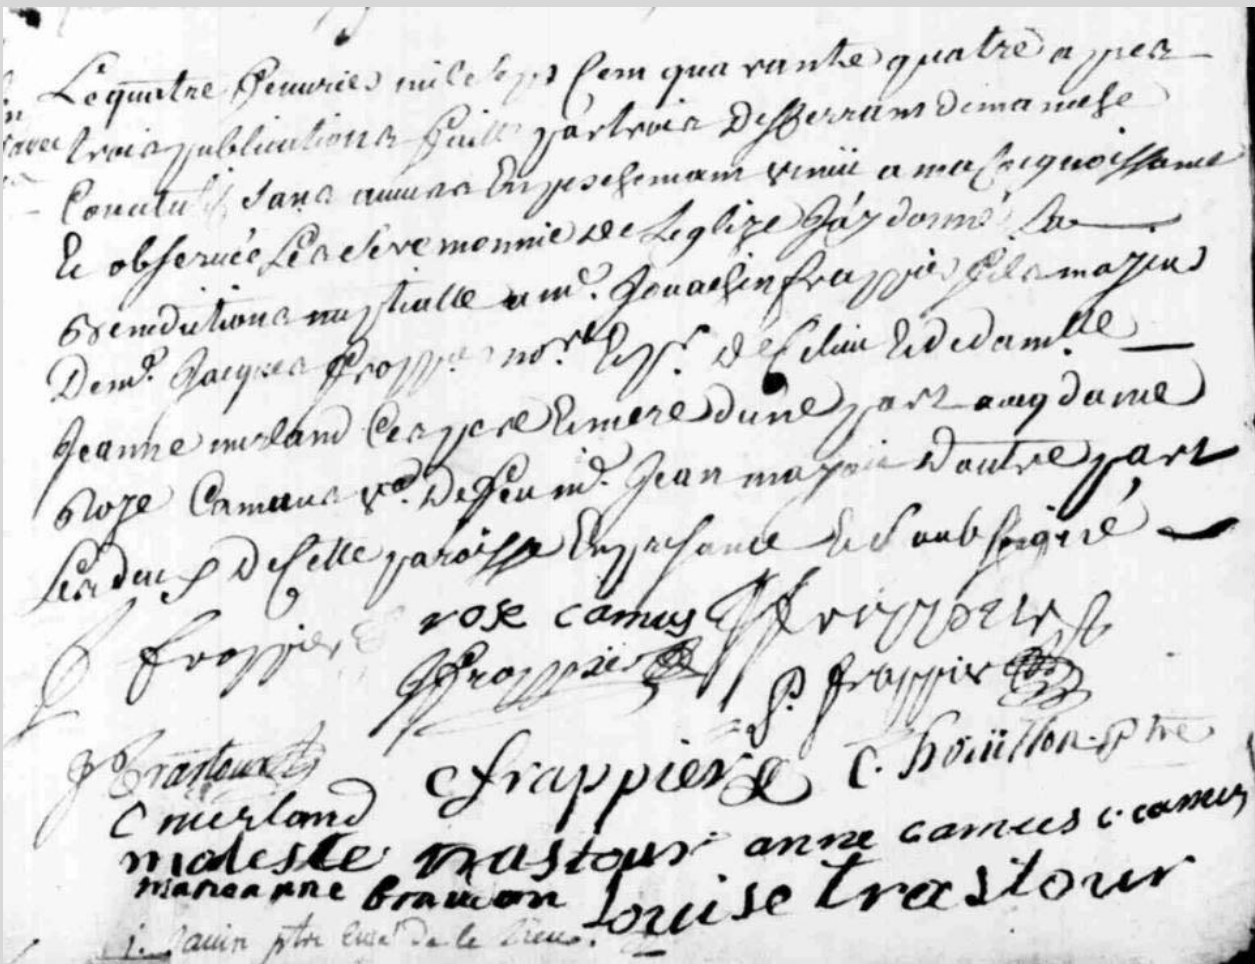 Le quatre feuvrier mil sept cem quarante quatre apres
trois publications faitte par trois differrans dimanche
Conecutif sans aucuns Enpeschemant venüe a ma Coignoissance
Et observée Les seremonnie de Leglize J'áy donné La
Benedictions nuptialle a mr. Jouachin frappier fils majeur
De mr. Jacques frappier nore Et pr. de Celieu Et de damlle
Jeanne merland Ces pere Et mere dune part avecq dame
Roze Camus ve. De feu mr. Jean D'autre part
Les deux De Cette paroisse En presance Et Soubsigné
J frappier rose camus
Frappier P. frappier
J Trastour Cfrappier C. ptre
C merland
modeste trastour anne camus c. camus
marie anne Louise trastour
j. ptre Curé de le